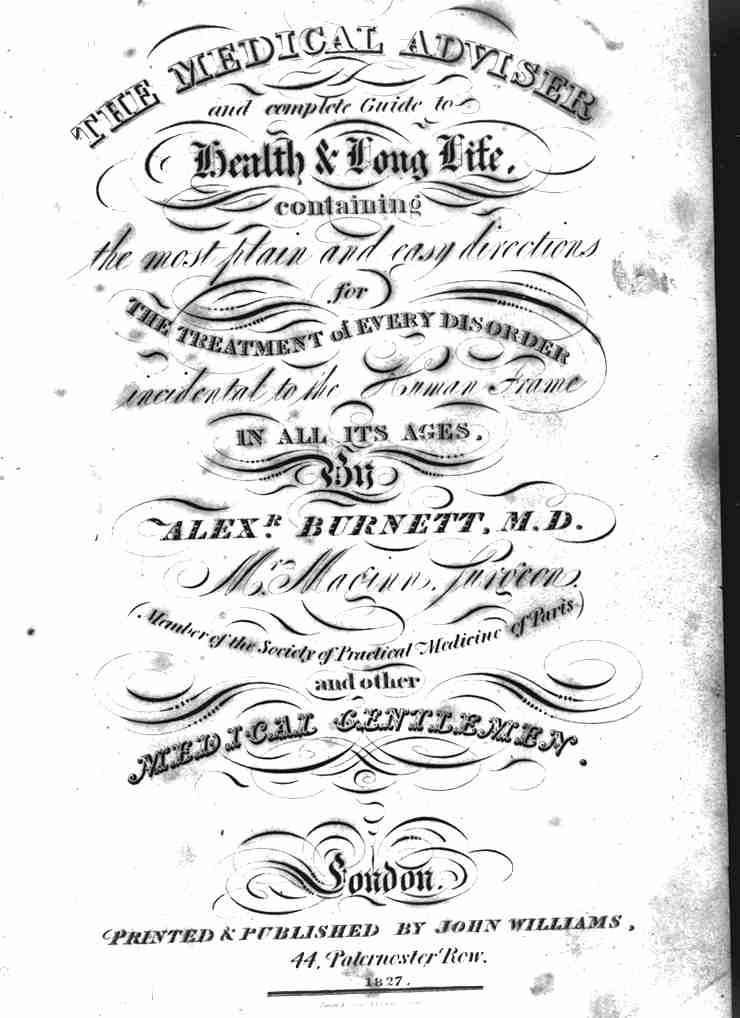 THE MEDICAL ADVISER
and complete Guide to
Health & Long Life,
containing
the most plain and easy directions
for
THE TREATMENT of EVERY DISORDER
incidental to the Human Frame
IN ALL ITS AGES.
By
ALEXR. BURNETT, M.D.
Mr. Maginn, Surgeon.
(Member of the Society of Practical Medicine of Paris)
and other
MEDICAL GENTLEMEN.
London.
PRINTED & PUBLISHED BY JOHN WILLIAMS,
44, Paternoster Row.
1827.